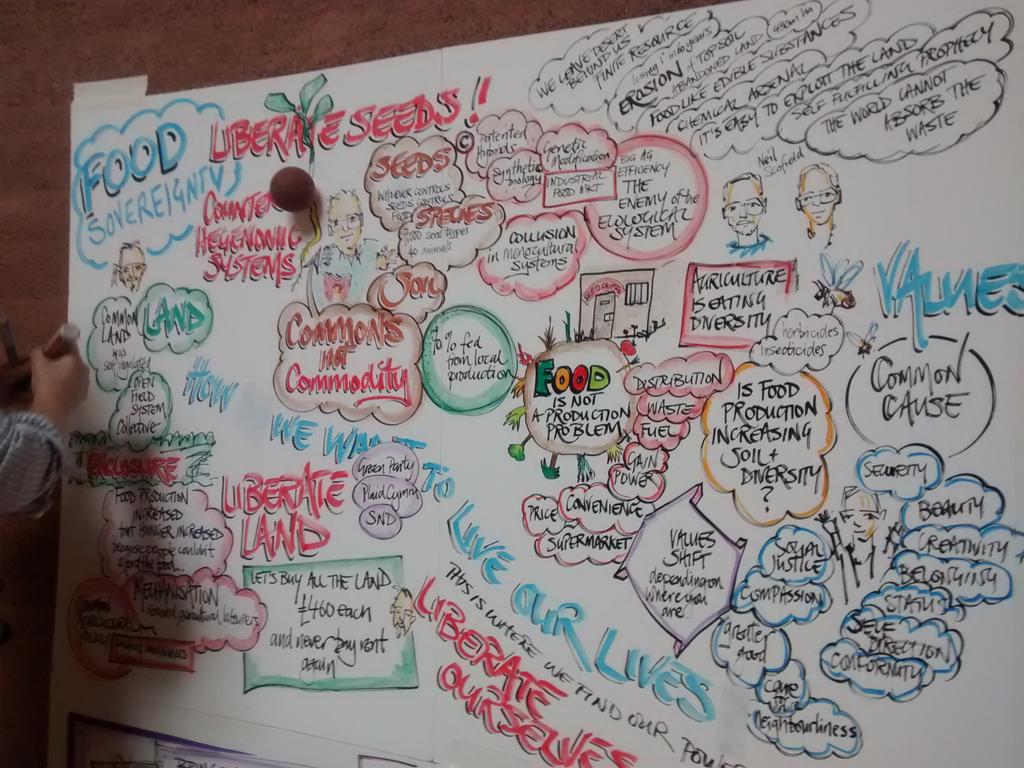 FOOD
SOVEREIGNTY
LIBERATE SEEDS!!
COUNTER
HEGEMONIC
SYSTEMS
WE LEAVE DESERT
BEHIND US
FINITE RESOURCE
EROSION of TOPSOIL
ABANDONED LAND
FOOD LIKE EDIBLE SUBSTANCES
CHEMICAL ARSENAL
IT'S EASY TO EXPLOIT THE LAND
SELF FULFILLING PROPHECY
THE WORLD CANNOT
ABSORB THE
WASTE
SEEDS
WHOEVER CONTROLS
SEEDS CONTROLS
FOOD
SPECIES
seed types
40 animals
SOIL
©
Patented
Hybrids
Synthetic
biology
Genetic
Modification
INDUSTRIAL
FOOD MKT
COLLUSION
in MONOCULTURAL
SYSTEMS
BIG AG
EFFICIENCY
THE
ENEMY of the
ECOLOGICAL
SYSTEM
Neil
Scofield
LAND
COMMON
LAND
was
self regulated
OPEN
FIELD
SYSTEM
Collective
ENCLOSURE
FOOD PRODUCTION
INCREASED
BUT HUNGER INCREASED
because people couldn't
afford the food
MECHANISATION
COMMON
AGRICULTURAL
POLICY
COMMONS
not
Commodity
% fed
from local
production
FOOD
IS NOT
A PRODUCTION
PROBLEM
AGRICULTURE
IS EATING
DIVERSITY
herbicides
insecticides
DISTRIBUTION
WASTE
FUEL
GAIN
POWER
CONVENIENCE
PRICE
SUPERMARKET
IS FOOD
PRODUCTION
INCREASING
SOIL +
DIVERSITY
?
VALUES
SHIFT
depending on
where you
are
HOW
WE WANT TO
LIVE OUR LIVES
LIBERATE
LAND
Green Party
Plaid Cymru
SNP
LET'S BUY ALL THE LAND
£460 each
and never buy rent
again
THIS IS WHERE WE FIND OUR POWER
LIBERATE
OURSELVES
VALUES
COMMON
CAUSE
SECURITY
BEAUTY
CREATIVITY
BELONGING
STATUS
SELF
DIRECTION
CONFORMITY
SOCIAL
JUSTICE
COMPASSION
greater
good
care
for
neighbourliness